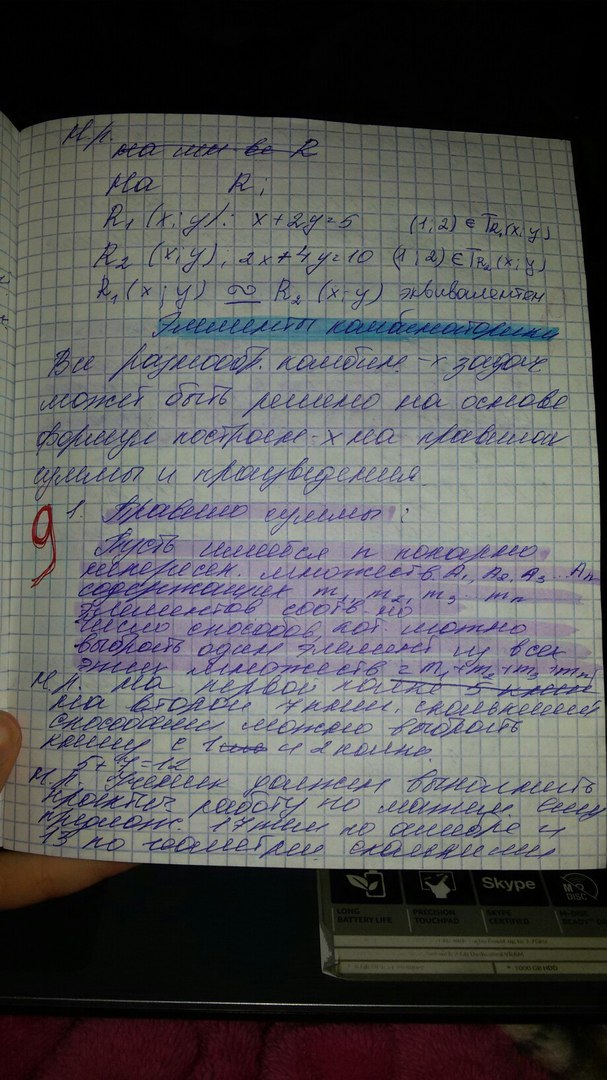 Н.р.
на мн-ве R
На R;
R₁ (x;y): x+2y=5 (1;2) ∈ T R₁(x;y)
R₂ (x;y): 2x+4y=10 (1;2) ∈ T R₂(x;y)
R₁(x;y) ∾ R₂(x;y) эквивалентен
Элементы комбинаторики
Все разнообр. комбин-х задач
может быть решено на основе
формул построен-х на правилах
суммы и произведения.
9 1. Правило суммы:
Пусть имеется n попарно
непересек. множеств A₁, A₂, A₃... Aₙ
содержащих m₁, m₂, m₃... mₙ
элементов соотв-но
Число способов, кот. можно
выбрать один элемент из всех
этих множеств = m₁+m₂+m₃+mₙ
Н.р. На первой полке 5 книг
на второй 7 книг. сколькими
способами можно выбрать
книгу с 1 и 2 полки.
5+7=12
Н.р. Ученик должен выполнить
практич работу по матем. ему
предлож. 17 тем по алгебре и
13 по геометрии. сколькими
Skype
M DISC
LONG BATTERY LIFE
PRECISION TOUCHPAD
SKYPE CERTIFIED
1000 GB HDD